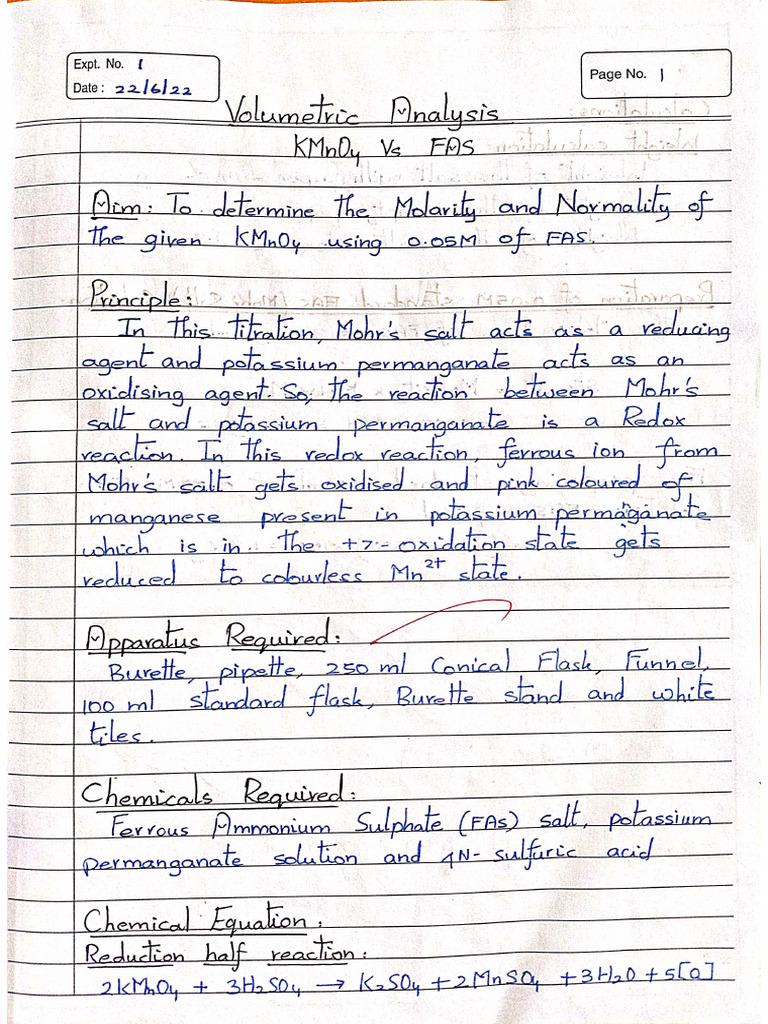 Expt. No. 1
Date: 22/6/22
Page No. 1
Volumetric Analysis
KMnO4 Vs FAS
Aim: To determine the Molarity and Normality of
the given KMnO4 using 0.05M of FAS.
Principle:
In this titration, Mohr's salt acts as a reducing
agent and potassium permanganate acts as an
oxidising agent. So, the reaction between Mohr's
salt and potassium permanganate is a Redox
reaction. In this redox reaction, ferrous ion from
Mohr's salt gets oxidised and pink coloured of
manganese present in potassium permaganate
which is in the +7-oxidation state gets
reduced to colourless Mn²⁺ state.
Apparatus Required:
Burette, pipette, 250 ml Conical Flask, Funnel,
100 ml standard flask, Burette stand and white
tiles.
Chemicals Required:
Ferrous Ammonium Sulphate (FAS) salt, potassium
permanganate solution and 4N- sulfuric acid
Chemical Equation:
Reduction half reaction:
2KMnO4 + 3H2SO4 → K2SO4 + 2MnSO4 + 3H2O + 5[O]